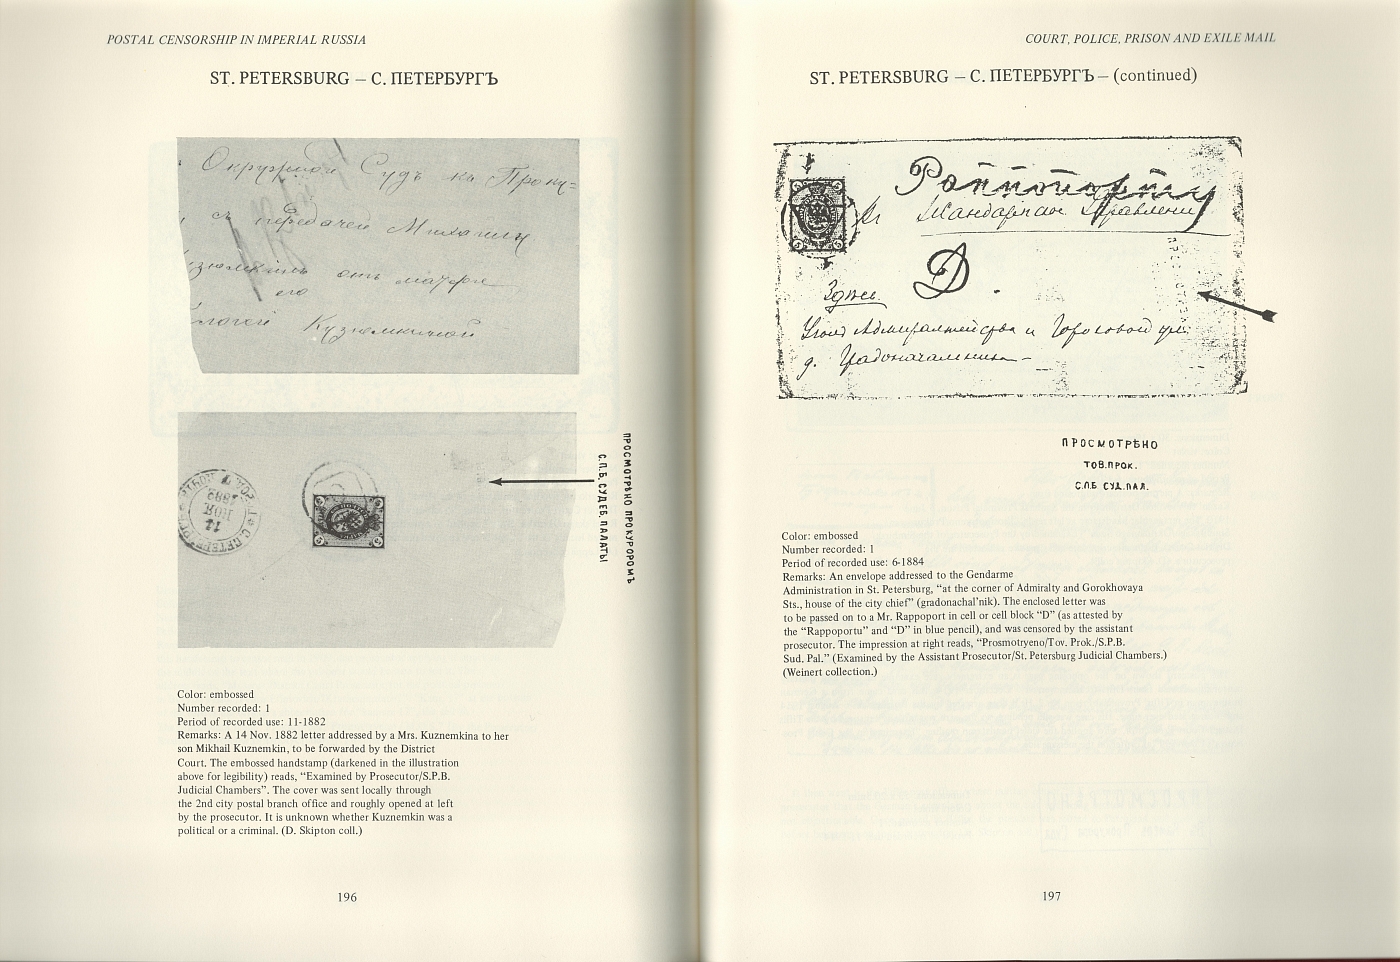 POSTAL CENSORSHIP IN IMPERIAL RUSSIA
ST. PETERSBURG – С. ПЕТЕРБУРГЪ
Окружной Судъ къ Проку=
съ передачей Михаилу
отъ матери
его
Кузюмкиной
ПРОСМОТРѢНО ПРОКУРОРОМЪ
С.П.Б. СУДЕБ. ПАЛАТЫ
С. ПЕТЕРБ
14
НОЯ
1882
Color: embossed
Number recorded: 1
Period of recorded use: 11-1882
Remarks: A 14 Nov. 1882 letter addressed by a Mrs. Kuznemkina to her
son Mikhail Kuznemkin, to be forwarded by the District
Court. The embossed handstamp (darkened in the illustration
above for legibility) reads, “Examined by Prosecutor/S.P.B.
Judicial Chambers”. The cover was sent locally through
the 2nd city postal branch office and roughly opened at left
by the prosecutor. It is unknown whether Kuznemkin was a
political or a criminal. (D. Skipton coll.)
196
COURT, POLICE, PRISON AND EXILE MAIL
ST. PETERSBURG – С. ПЕТЕРБУРГЪ – (continued)
Раппопорту
Жандармское Управление
D.
Здѣсь
Уголъ Адмиралтейства и Гороховой ул.
д. Градоначальника
ПРОСМОТРѢНО
ТОВ.ПРОК.
С.П.Б СУД.ПАЛ.
Color: embossed
Number recorded: 1
Period of recorded use: 6-1884
Remarks: An envelope addressed to the Gendarme
Administration in St. Petersburg, “at the corner of Admiralty and Gorokhovaya
Sts., house of the city chief” (gradonachal’nik). The enclosed letter was
to be passed on to a Mr. Rappoport in cell or cell block “D” (as attested by
the “Rappoportu” and “D” in blue pencil), and was censored by the assistant
prosecutor. The impression at right reads, “Prosmotryeno/Tov. Prok./S.P.B.
Sud. Pal.” (Examined by the Assistant Prosecutor/St. Petersburg Judicial Chambers.)
(Weinert collection.)
197